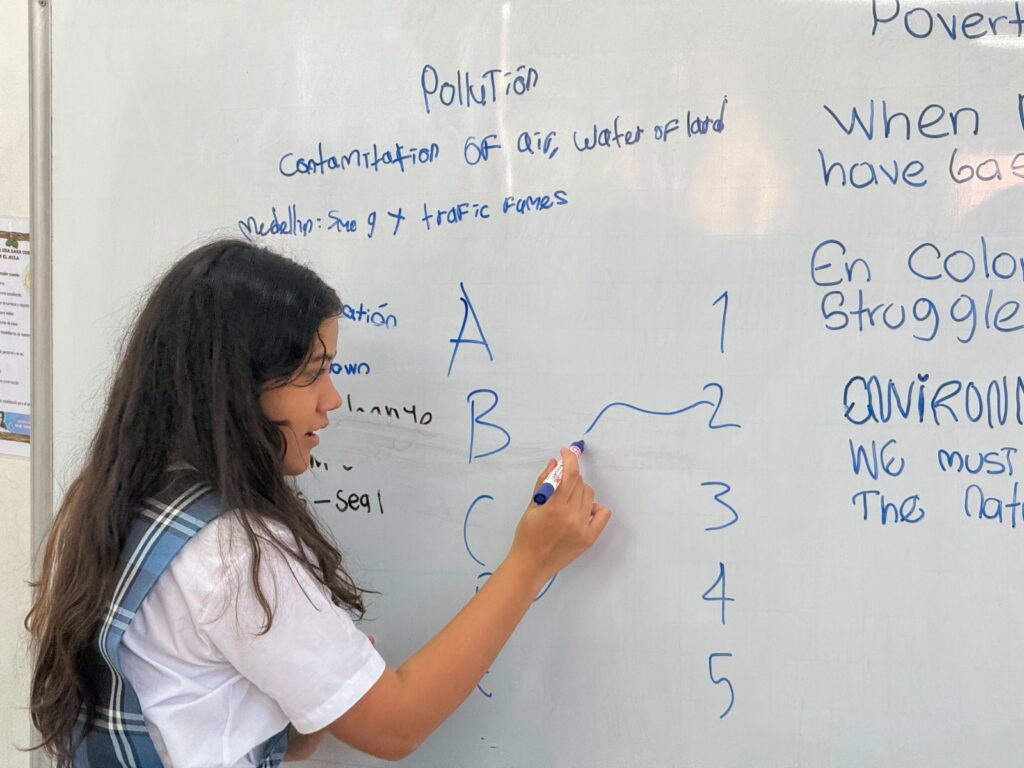 Pollutión
Contamitation OF air, Water oF land
Medellin: Smo g y trafic Fumes
atión
own
- Seal
A
B
C
1
2
3
4
5
Povert
When
have bas
En Colo
Struggle
ENVIRONM
WE must
The Nat